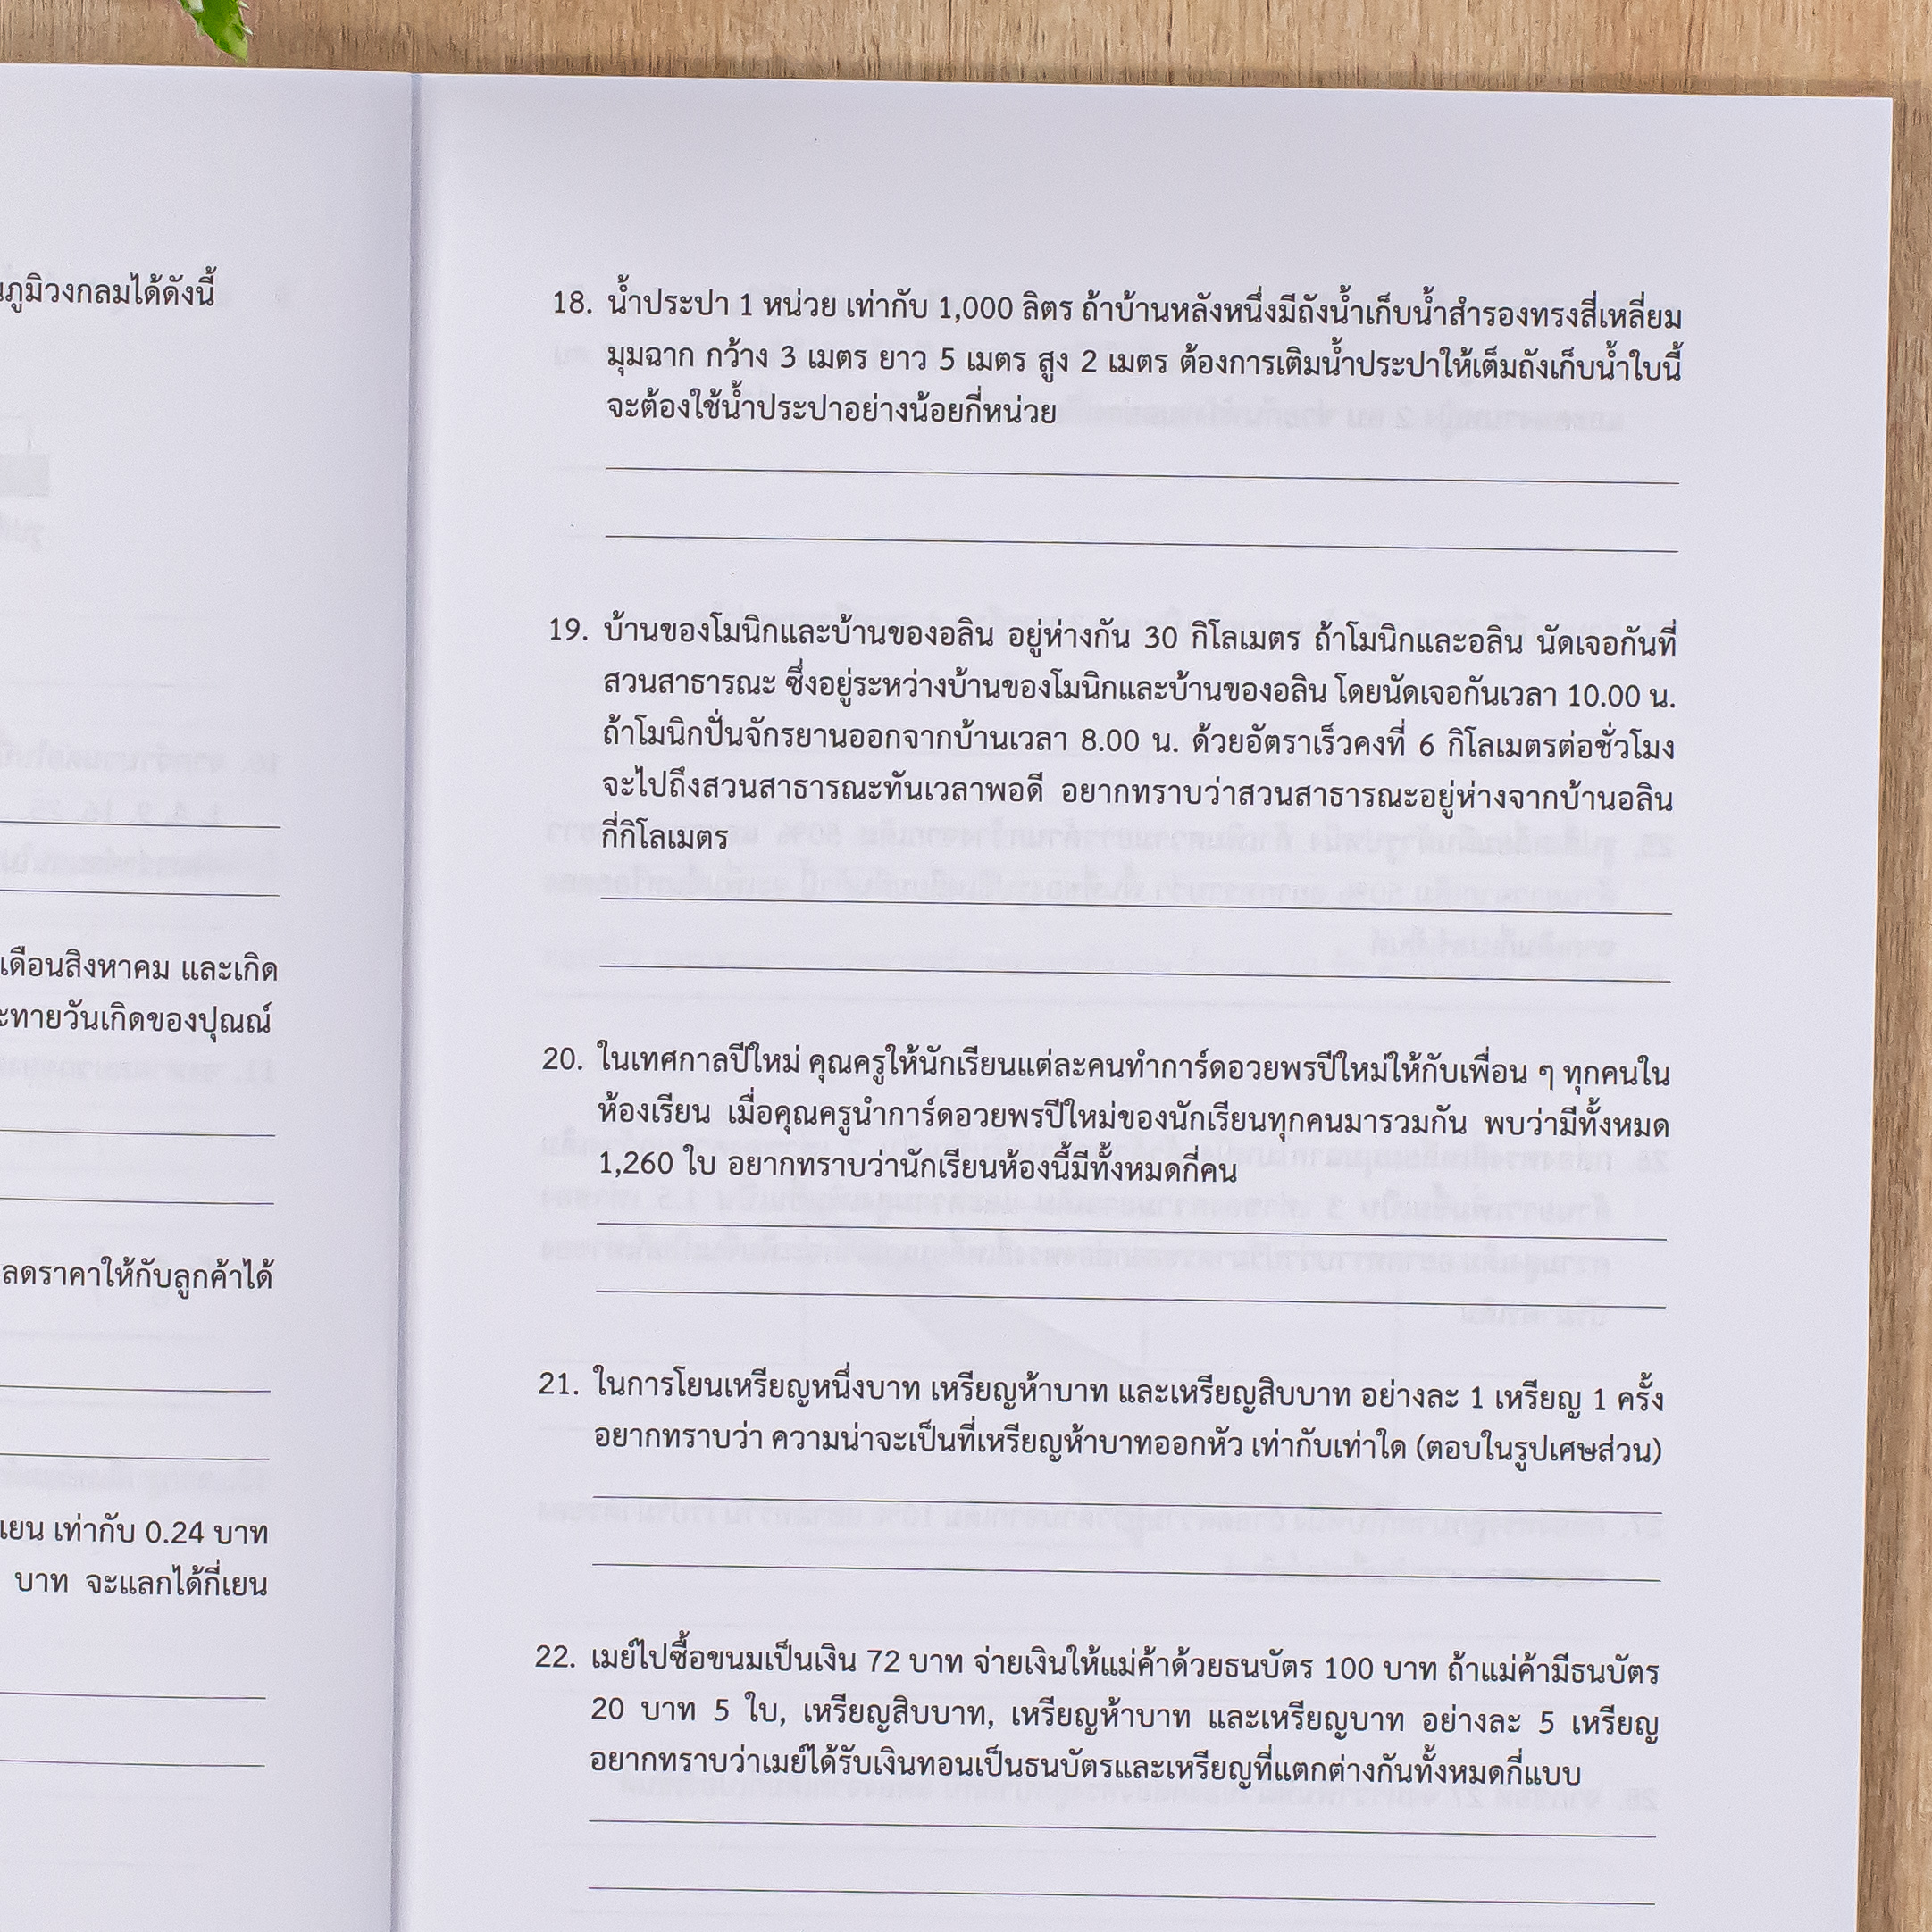 นภูมิวงกลมได้ดังนี้
เดือนสิงหาคม และเกิด
ะทายวันเกิดของปุณณ์
ลดราคาให้กับลูกค้าได้
เยน เท่ากับ 0.24 บาท
บาท จะแลกได้กี่เยน
18. น้ำประปา 1 หน่วย เท่ากับ 1,000 ลิตร ถ้าบ้านหลังหนึ่งมีถังน้ำเก็บน้ำสำรองทรงสี่เหลี่ยม
มุมฉาก กว้าง 3 เมตร ยาว 5 เมตร สูง 2 เมตร ต้องการเติมน้ำประปาให้เต็มถังเก็บน้ำใบนี้
จะต้องใช้น้ำประปาอย่างน้อยกี่หน่วย
19. บ้านของโมนิกและบ้านของอลิน อยู่ห่างกัน 30 กิโลเมตร ถ้าโมนิกและอลิน นัดเจอกันที่
สวนสาธารณะ ซึ่งอยู่ระหว่างบ้านของโมนิกและบ้านของอลิน โดยนัดเจอกันเวลา 10.00 น.
ถ้าโมนิกปั่นจักรยานออกจากบ้านเวลา 8.00 น. ด้วยอัตราเร็วคงที่ 6 กิโลเมตรต่อชั่วโมง
จะไปถึงสวนสาธารณะทันเวลาพอดี อยากทราบว่าสวนสาธารณะอยู่ห่างจากบ้านอลิน
กี่กิโลเมตร
20. ในเทศกาลปีใหม่ คุณครูให้นักเรียนแต่ละคนทำการ์ดอวยพรปีใหม่ให้กับเพื่อน ๆ ทุกคนใน
ห้องเรียน เมื่อคุณครูนำการ์ดอวยพรปีใหม่ของนักเรียนทุกคนมารวมกัน พบว่ามีทั้งหมด
1,260 ใบ อยากทราบว่านักเรียนห้องนี้มีทั้งหมดกี่คน
21. ในการโยนเหรียญหนึ่งบาท เหรียญห้าบาท และเหรียญสิบบาท อย่างละ 1 เหรียญ 1 ครั้ง
อยากทราบว่า ความน่าจะเป็นที่เหรียญห้าบาทออกหัว เท่ากับเท่าใด (ตอบในรูปเศษส่วน)
22. เมย์ไปซื้อขนมเป็นเงิน 72 บาท จ่ายเงินให้แม่ค้าด้วยธนบัตร 100 บาท ถ้าแม่ค้ามีธนบัตร
20 บาท 5 ใบ, เหรียญสิบบาท, เหรียญห้าบาท และเหรียญบาท อย่างละ 5 เหรียญ
อยากทราบว่าเมย์ได้รับเงินทอนเป็นธนบัตรและเหรียญที่แตกต่างกันทั้งหมดกี่แบบ